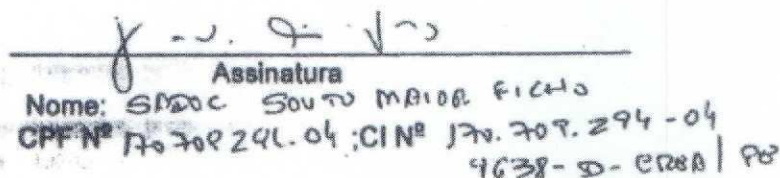 Assinatura
Nome: SADOC SOUTO MAIOR FILHO
CPF Nº 170.709.294-04 ;CI Nº 170.709.294-04
4638-D-CREA|